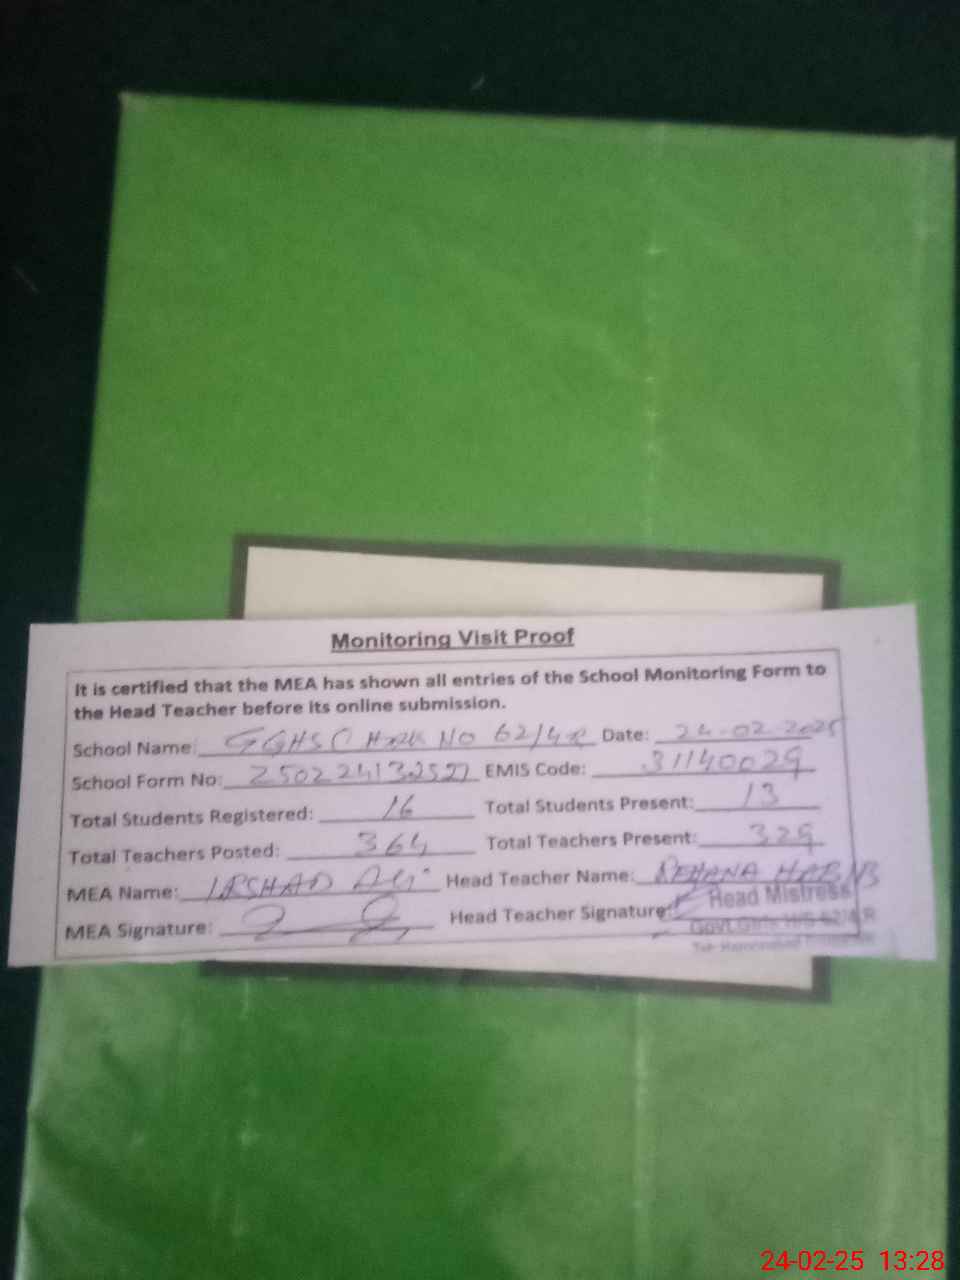 Monitoring Visit Proof
It is certified that the MEA has shown all entries of the School Monitoring Form to
the Head Teacher before its online submission.
School Name: GGHS CHAK NO 62/4R Date: 24-02-2025
School Form No: EMIS Code: 31140029
Total Students Registered: 16 Total Students Present: 13
Total Teachers Posted: 364 Total Teachers Present: 329
MEA Name: IRSHAD ALI Head Teacher Name: REHANA
MEA Signature: Head Teacher Signature:
Head Mistress
Govt. Girls H/S 62/4.R
24-02-25 13:28